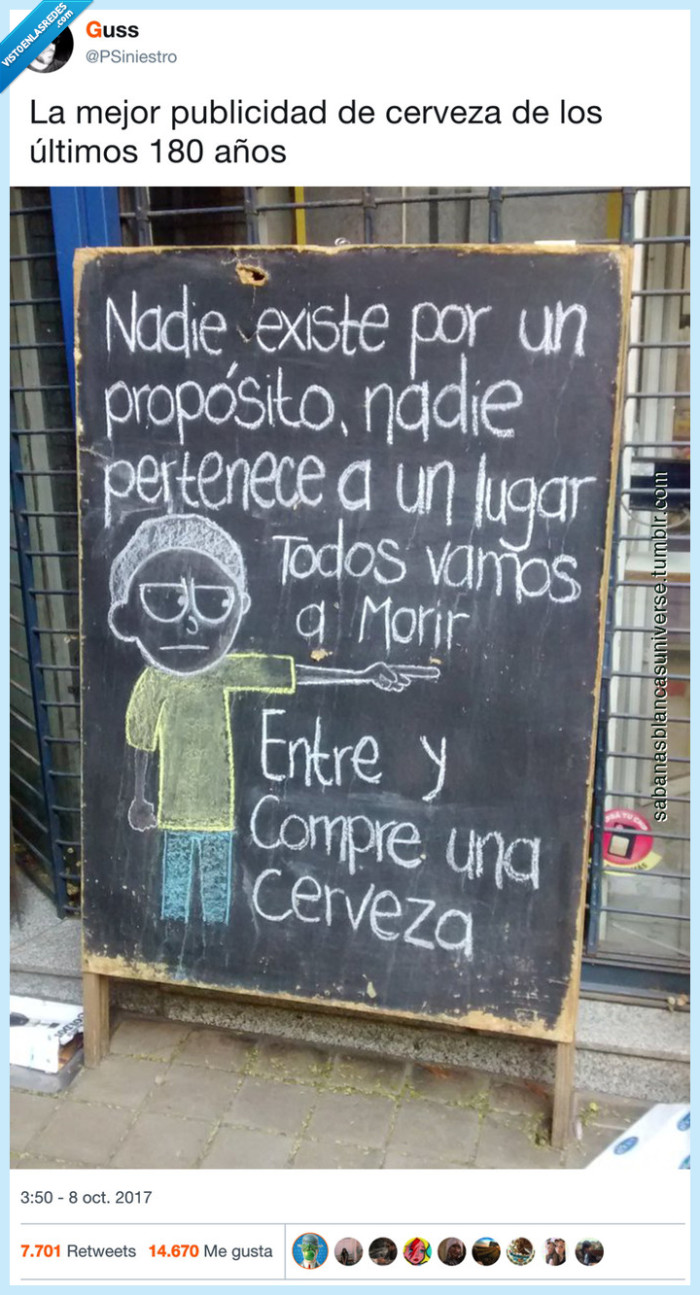 VISTOENLASREDES
.com
Guss
@PSiniestro
La mejor publicidad de cerveza de los
últimos 180 años
Nadie existe por un
propósito, nadie
pertenece a un lugar
Todos vamos
a Morir
Entre y
Compre una
Cerveza
sabanasblancasuniverse.tumblr.com
3:50 - 8 oct. 2017
7.701 Retweets 14.670 Me gusta